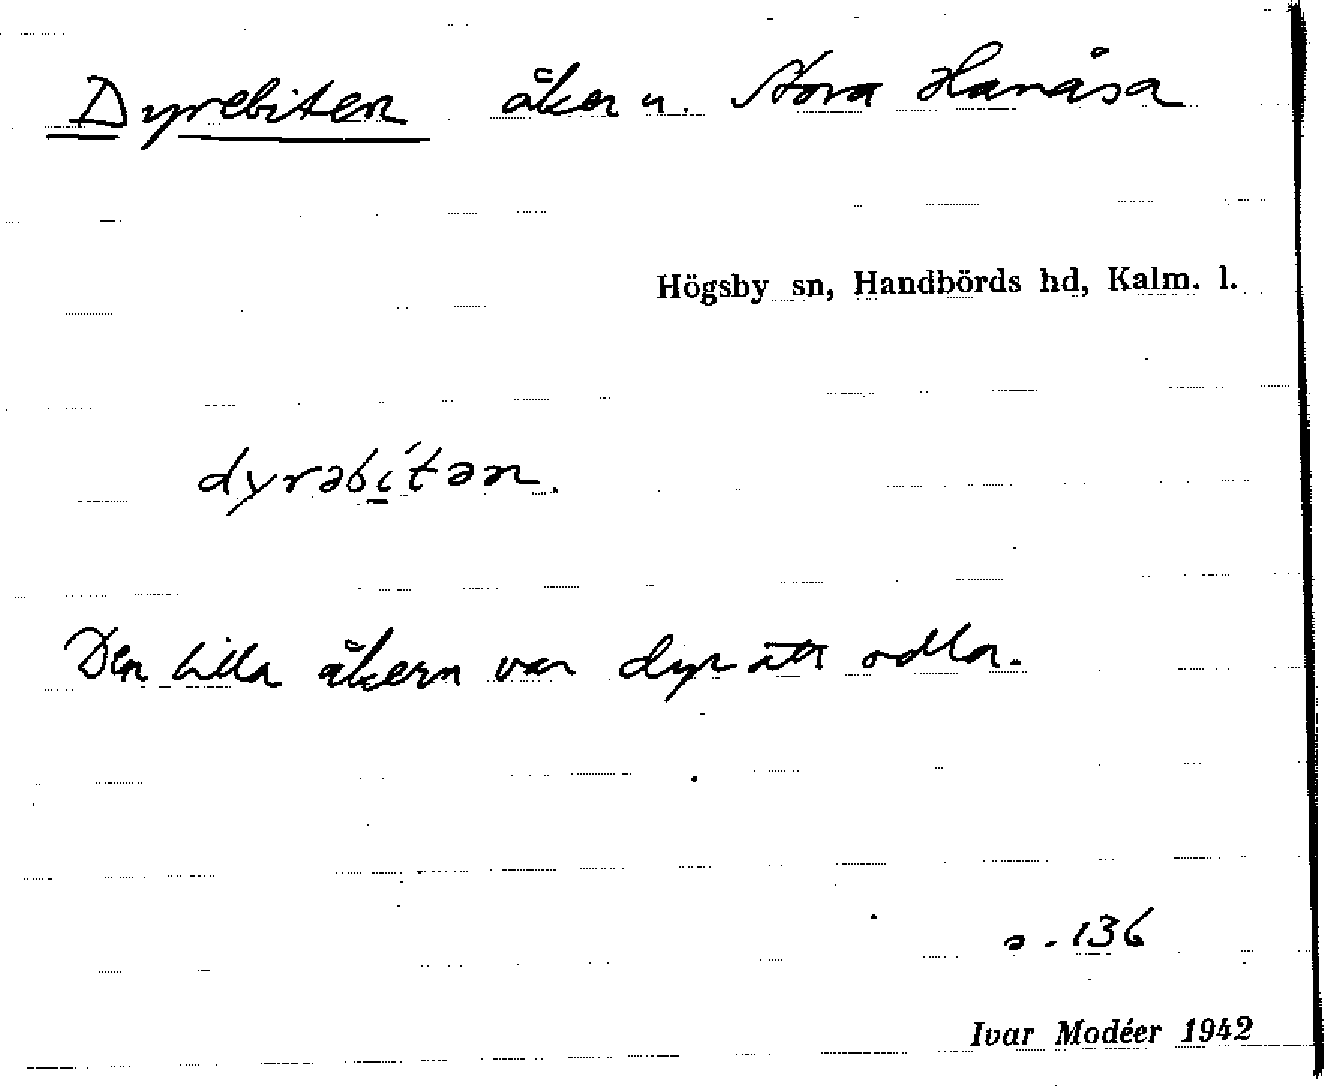 Dyrebiten åker u. Stora Hanåsa
Högsby sn, Handbörds hd, Kalm. l.
dyrəbí̲tən.
Den lilla åkern var dyr att odla.
s. 136
Ivar Modéer 1942